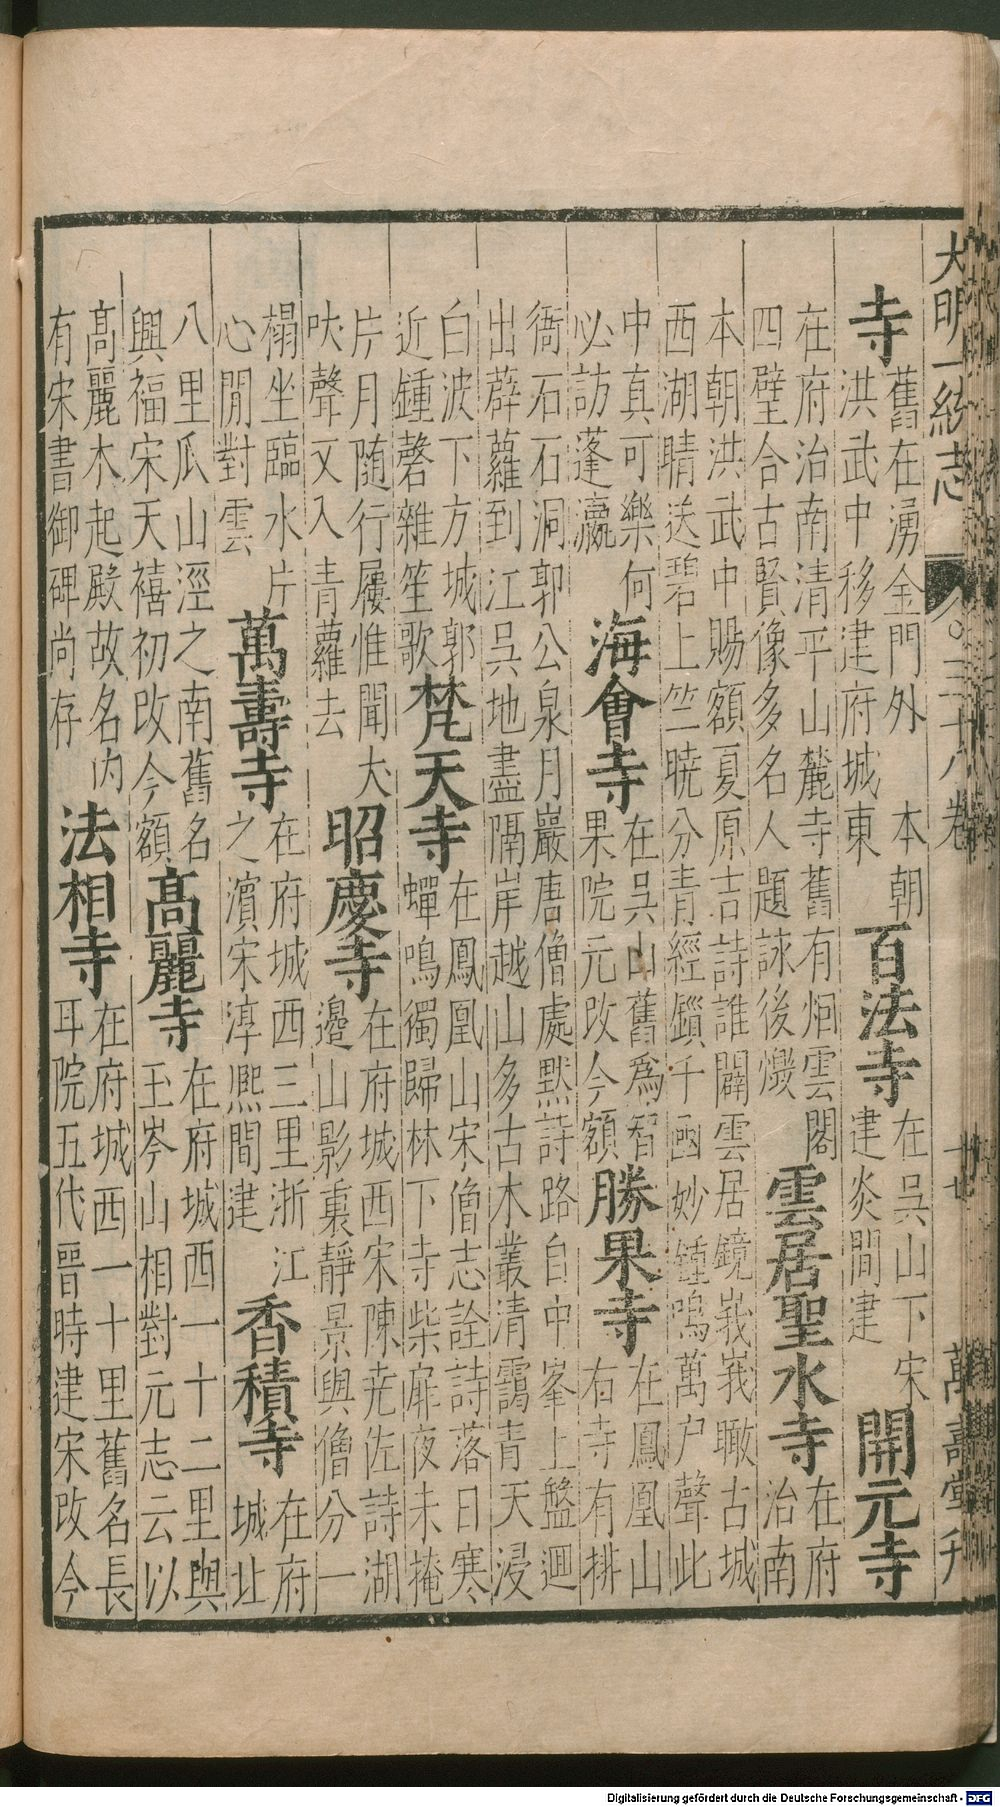 大明一統志　八〇三十八卷　十七　萬壽堂刋
寺
舊在湧金門外　本朝
洪武中移建府城東
百法寺
在吳山下宋
建炎間建
開元寺
在府治南清平山麓寺舊有炯雲閣
四壁合古賢像多名人題詠後燬
雲居聖水寺
在府
治南
本朝洪武中賜額夏原吉詩誰闢雲居鏡峩峩瞰古城
西湖睛送碧上竺曉分青經鎖千凾妙鍾鳴萬户聲此
中真可樂何
必訪蓬瀛
海會寺
在吳山舊爲智
果院元改今額
勝果寺
在鳳凰山
右寺有排
衙石石洞郭公泉月巖唐僧處默詩路自中峯上盤迴
出薜蘿到江吳地盡隔岸越山多古木叢清靄青天浸
白波下方城郭
近鍾磬雜笙歌
梵天寺
在鳳凰山宋僧志詮詩落日寒
蟬鳴獨歸林下寺柴扉夜未掩
片月隨行屨惟聞犬
吠聲又入青蘿去
昭慶寺
在府城西宋陳尭佐詩湖
邉山影裏靜景與僧分一
榻坐臨水片
心閒對雲
萬壽寺
在府城西三里浙江
之濱宋淳熈間建
香積寺
在府
城北
八里瓜山涇之南舊名
興福宋天禧初改今額
高麗寺
在府城西一十二里與
玉岑山相對元志云以
髙麗木起殿故名内
有宋書御碑尚存
法相寺
在府城西一十里舊名長
耳院五代晉時建宋改今
Digitalisierung gefördert durch die Deutsche Forschungsgemeinschaft - DFG